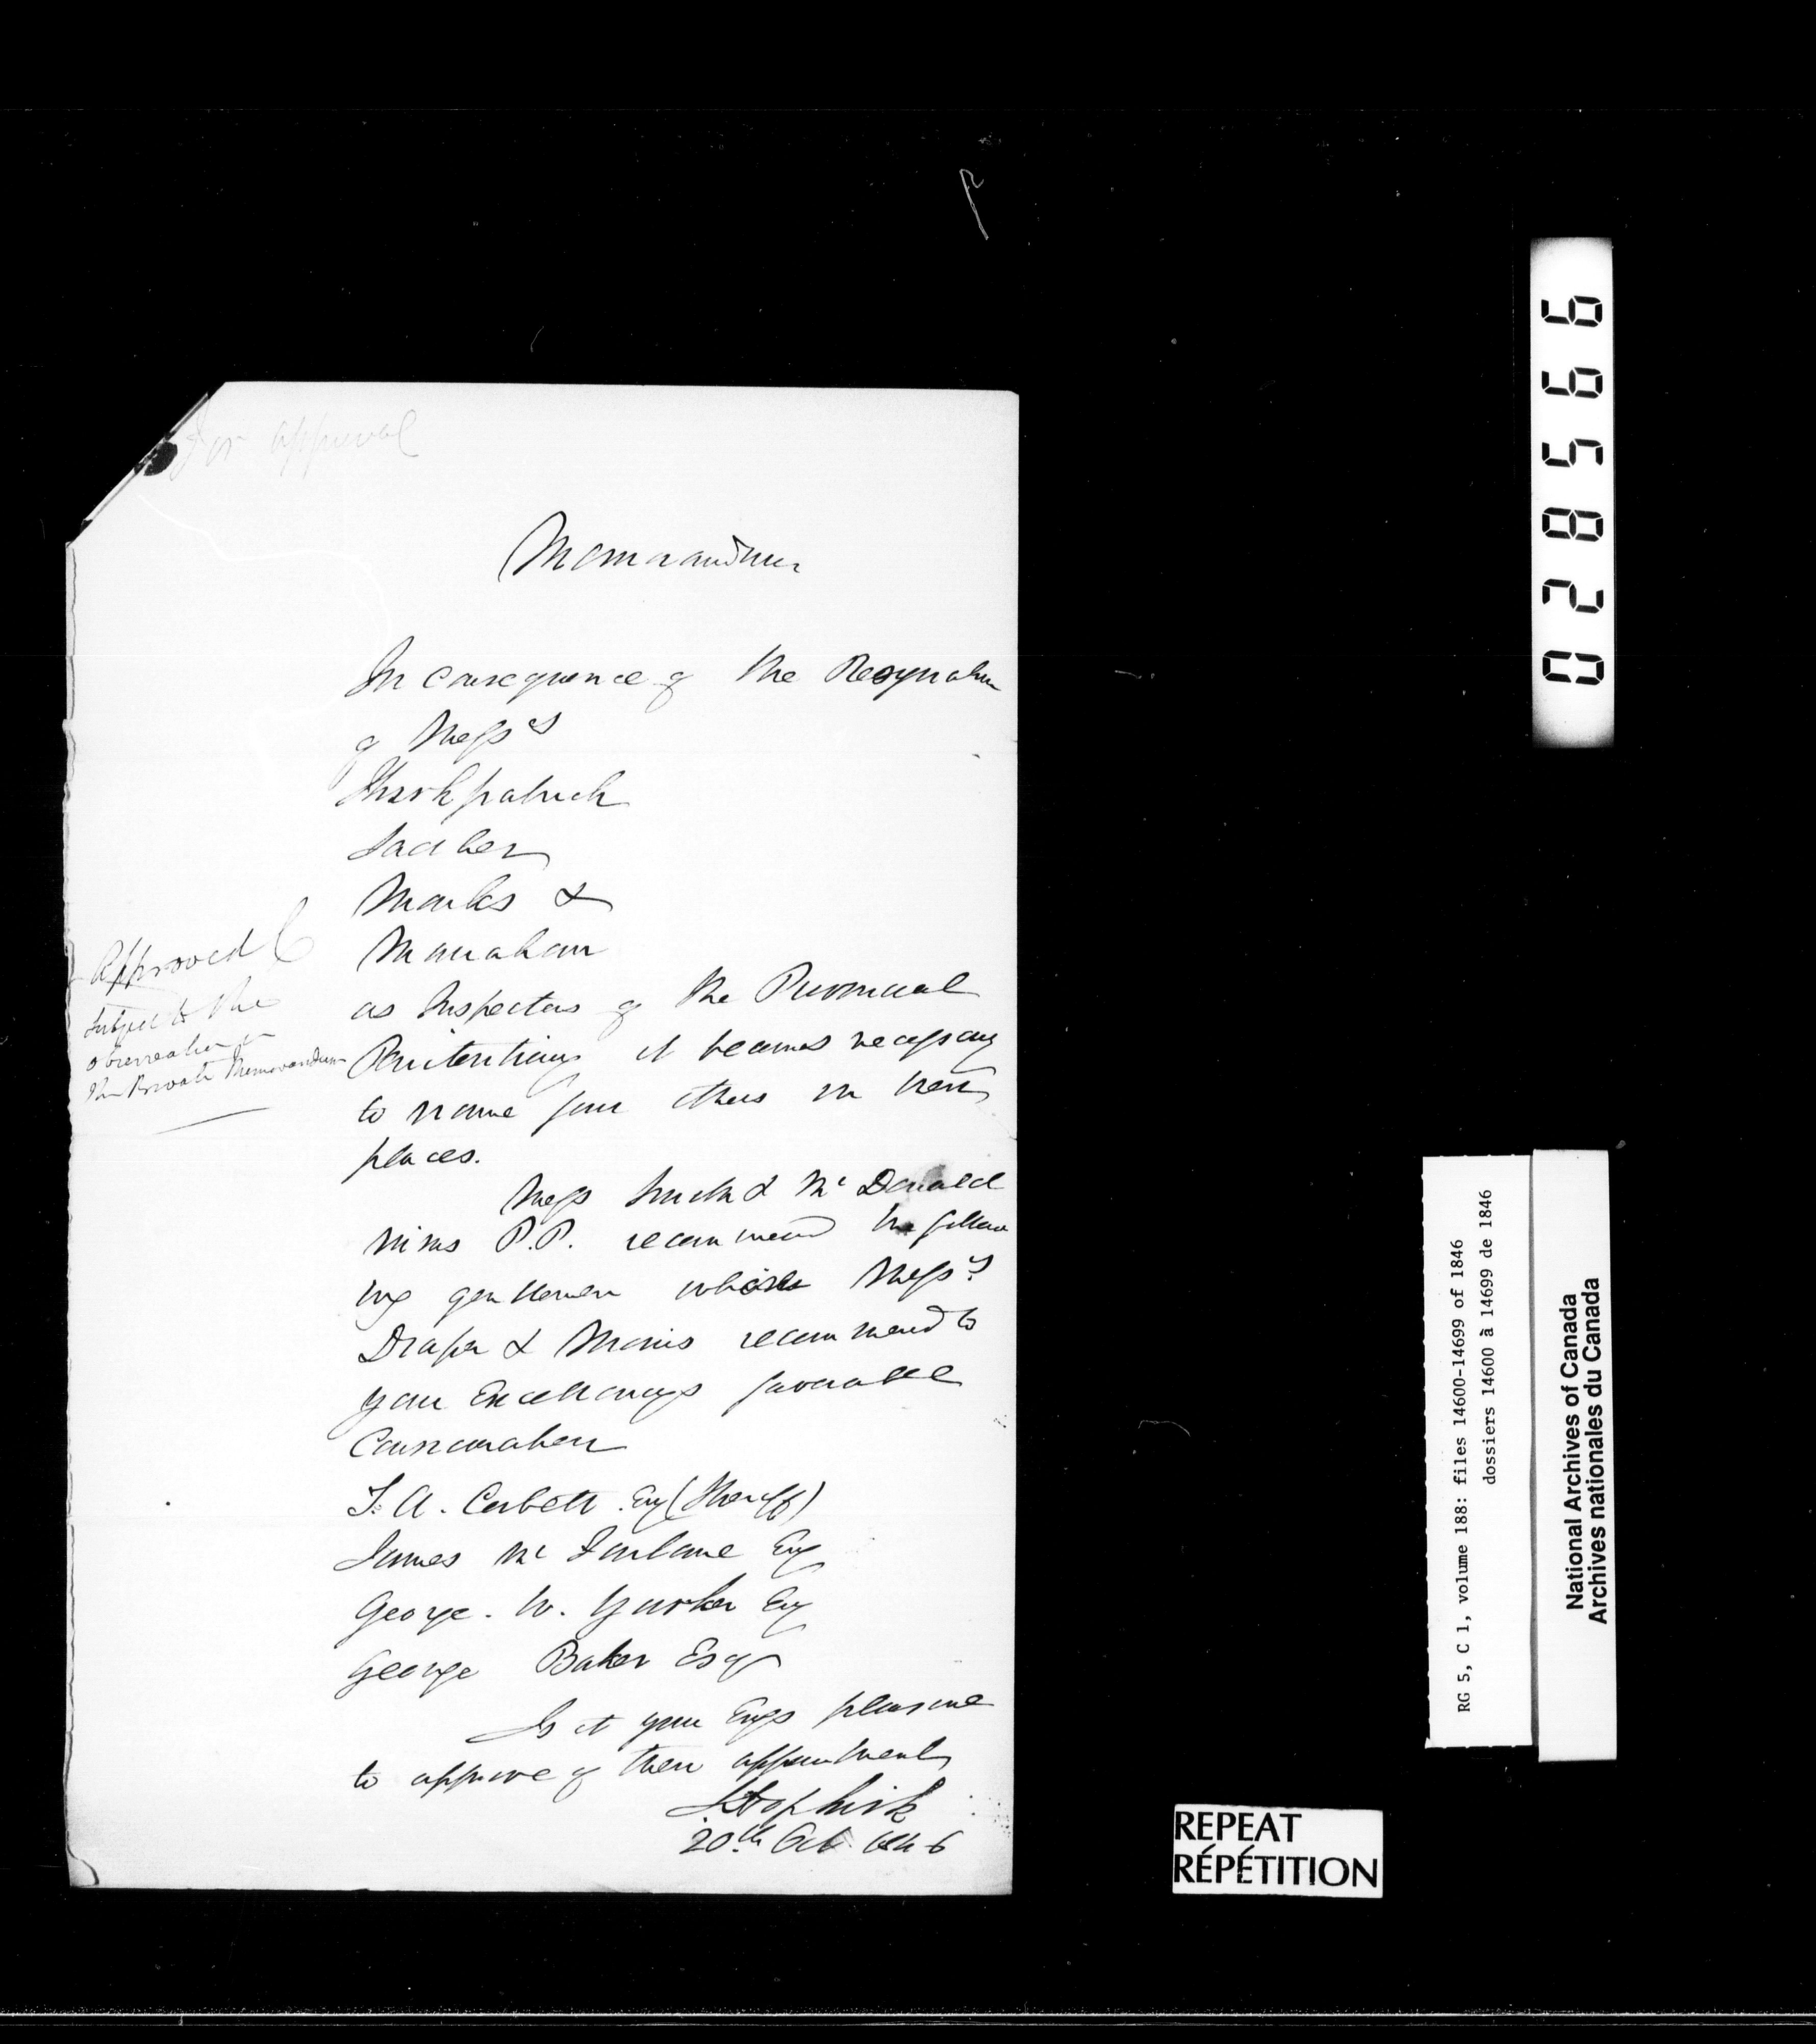 For approval
Memorandum
In consequence of the Resignation
of Messrs
Thirkpatrick
Sadlier
Marks &
Manahan
as Inspectors of the Provincial
Penitentiary it becomes necessary
to name four others in their
places.
Messrs Smith & McDonald
M.P.P. recommend the follow
ing gentlemen whom Messrs
Draper & Morris recommend to
your Excellencys favorable
Consideration
T. A. Corbett Esq (Sheriff)
James McFarlane Esq
George. W. Yarker Esq
George Baker Esqr
Is it your Excys pleasure
to approve of their appointment
J Hopkirk
20th Oct. 1846
Approved C
Subject to the
observation in
the Private Memorandum
028566
RG 5, C 1, volume 188: files 14600-14699 of 1846
dossiers 14600 à 14699 de 1846
National Archives of Canada
Archives nationales du Canada
REPEAT
RÉPÉTITION